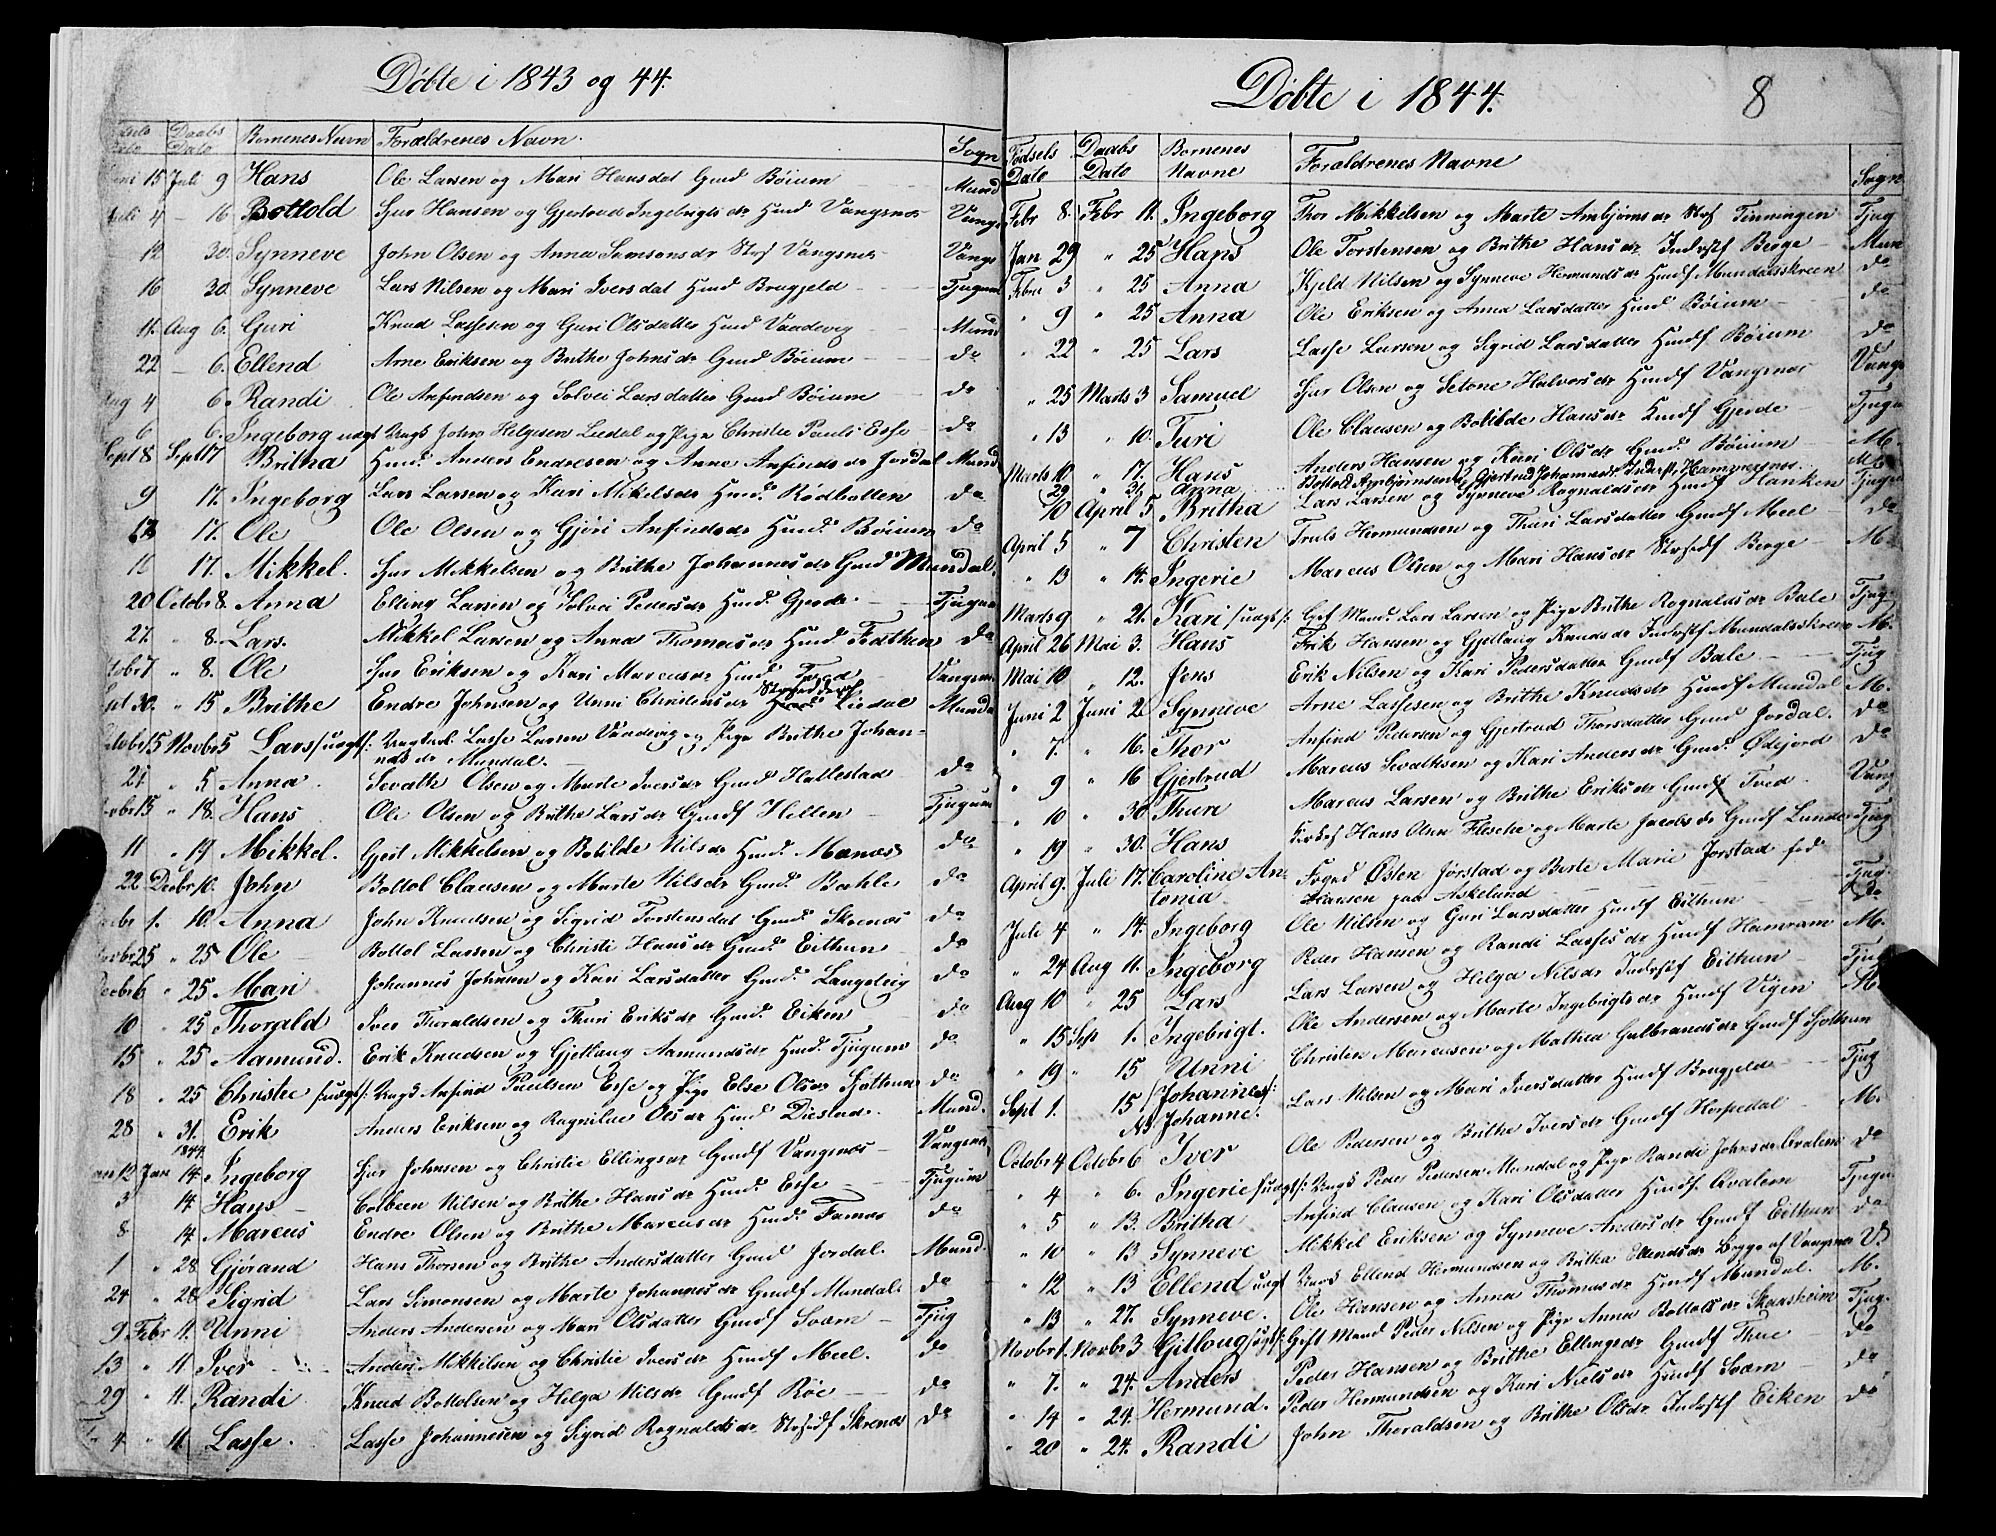 Döbte i 1843 og 44.
Dato Daabs Dato Bornenes Navn Forældrenes Navn. Sogn
15 Juli 9 Hans Ole Larsen og Mari Hansdat Gmd Böium Mund
4 — 16 Bottold Sjur Hansen og Gjertrud Ingebrigtsdr Hmd Vangsnes Vangs
12 30. Synneve John Olsen og Anna Samsonsdr Stsf Vangsnes Vangs
16 30. Synneve Lars Nilsen og Mari Iversdat Hmd Brugjeld Tjugum
11. Aug 6. Guri Knud Lassesen og Guri Olsdatter Hmd Vandevig Mund
22 — 6. Ellend Arne Eriksen og Brithe Johnsdr Gmd Böium do
Aug 4 6. Randi Ole Anfindsen og Solvei Larsdatter Gmd Böium do
6 6. Ingeborg uægt Ungk John Helgesen Liedal og Pige Christie Pauls Esse do
Sept 8 Sept 17 Britha Hmd. Anders Endresen og Anne Anfindsdr Jordal Mund
9 17. Ingeborg Lars Larsen og Kari Mikelsdr Hmd. Rödbotten do
17. Ole Ole Olsen og Gjöri Anfindsdr Hmd. Böium do
16 17. Mikkel. Sjur Mikkelsen og Brithe Johannesdr Gmd Mundal.
20 Octobr 8. Anna Elling Larsen og Solvei Pedersdr Hmd. Gjerde Tjugum
27. " 8. Lars. Mikkel Larsen og Anna Thomasdr Hmd Fæthun do
7 " 8. Ole Sjur Eriksen og Kari Marcusdr Hmd. Tved Vangsn
30. " 15 Brithe Endre Johnsen og Unni Christensdr Liedal Munda
15 Novbr 5 Lars /:uægt:/ Ungkal: Lasse Larsen Vandevig og Pige Brithe Johan-
nesdr Mundal.
21 " 5 Anna. Sevath Olsen og Marte Iversdr Gmd Hallestad do
15 " 18. Hans Ole Olsen og Brithe Larsdr Gmdf Hellen Tjugum
11 " 19 Mikkel. Gjest Mikkelsen og Botilde Nilsdr Hmd. Manæs do
22 Decbr 10. John Bottol Clausen og Marte Nilsdr Gmd. Bahle do
1. 10. Anna John Knudsen og Sigrid Torstensdat Gmd. Skrenæs do
25 " 25 Ole Bottol Larsen og Christi Hansdr Gmd Eithun do
Decbr 6 " 25 Mari Johannes Johnsen og Kari Larsdatter Gmd. Langedeig do
10 " 25 Thorald Iver Thoraldsen og Thuri Eriksdr Gmd. Eiken do
15 " 25 Aamund. Erik Knudsen og Gjetlaug Aamundsdr Hmd. Tjugum do
18 " 25 Christie /:uægt:/ Ungk Anfind Paulsen Esse og Pige Else Olsdr Sjöthun do
28 " 31. Erik Anders Eriksen og Ragnilde Olsdr Hmd Diestad. Mund.
1844
12 Jan 14 Ingeborg Sjur Johnsen og Christie Ellingsdr Gmdf Vangsnæs Vangsnes
3 14 Hans Colbeen Nilsen og Brithe Hansdr Hmd. Esse Tjugum
8 14 Marcus Endre Olsen og Brithe Marcusdr Hmd. Farnæs do
1 " 28 Gjörand Hans Thoresen og Brithe Andersdatter Gmd Jordal. Mund.
24 " 28 Sigrid Lars Simonsen og Marte Johannesdr Gmdf Mundal do
9 Febr 11. Unni Anders Andersen og Mari Olsdatter Gmdf Sværn Tjug
13 " 11. Iver Anders Mikkelsen og Christie Iversdr Hmdf Meel. do
29 " 11. Randi Knud Bottolsen og Helga Nilsdr Gmdf Röe do
4 " 11. Lasse. Lasse Johannesen og Sigrid Rognaldsdr Stsedf Skrenæs do
Döbte i 1844. 8
Födsels Dato Daabs Dato Bornenes Navne Forældrenes Navne Sogn
Febr 8. Febr 11. Ingeborg Thor Mikkelsen og Marte Arnbjörnsdr Stsf Tenningen Tjug
Jan 29 " 25 Hans Ole Torstensen og Brithe Hansdr Inderstf Berge Mun
Febru 3 " 25 Anna Kjeld Nilsen og Synneve Hermundsdr Hmdf Mundalsskreen do
" 9 " 25 Anna Ole Eriksen og Anna Larsdatter Hmd Böium do
" 22 " 25 Lars Lasse Larsen og Sigrid Larsdatter Hmdf Böium do
" 25 Marts 3 Samuel Sjur Olsen og Setone Halvorsdr Hmdf Vangsnæs Vangs
" 13 " 10. Turi Ole Clausen og Botilde Hansdr Hmdf Gjerde Tjugu
Marts 10 " 17. Hans Anders Hansen og Kari Olsdr Gmd. Böium M.
29 " 31 Anna Bottold Arnbjörnsen og Gjertrud Johannesdr Inderst. Hamrenes. M.
10 April 5 Britha Lars Larsen og Synneve Rognaldsdr Hmdf Hanken Tjugu
April 5 " 7 Christen Truls Hermundsen og Thuri Larsdatter Gmdf Meel do
" 13 " 14. Ingerie Marcus Olsen og Mari Hansdr Stsedf Berge M.
Marts 9 " 21. Kari /:uægt:/ Gift Mand Lars Larsen og Pige Brithe Rognaldsdr Bale Tjug
April 26 Mai 3. Hans Erik Hansen og Gjetlaug Knudsdr Inderstf Mundalsskreen M.
Mai 10 " 12. Jens Erik Nilsen og Kari Pedersdatter Gmdf Bale Tjug
Juni 2 Juni 2. Synneve Arne Lassesen og Brithe Knudsdr Hmdf Mundal M.
" 7. " 16. Thor Anfind Pedersen og Gjertrud Thorsdatter Gmd Jordal. do
" 9 " 16 Gjertrud Marcus Sevathsen og Kari Andersdr Gmd. Ödejord do
" 10 " 30 Thuri Marcus Larsen og Brithe Eriksdr Gmdf Tved Vang
" 19 " 30. Hans Kirkes. Hans Olsen Flesche og Marte Jacobsdr Gmdf Lunde Tjug
April 9. Juli 17. Caroline An- Foged Östen Jorstad og Berte Marie Jorstad fød
tonia. Hansen paa Askelund Tjug.
Juli 4 " 14. Ingeborg Ole Nilsen og Guri Larsdatter Hmdf Eithun do
" 24 Aug 11. Ingeborg Peder Hansen og Randi Lassesdr Hmdf Hamram M.
Aug 10 " 25 Lars Lars Larsen og Helga Nilsdr Inderstf Eithun Tjug
" 15 Sep 1. Ingebrigt. Ole Andersen og Marte Ingebrigtsdr Hmdf Vigen M.
" 19 " 15 Unni Christen Marcusen og Mathea Gulbrandsdr Gmdf Sjöthun
Sept 1. 15 /Johannes/: Lars Nilsen og Mari Iversdatter Hmdf Brugjeld Tjug
NB Johanne.
Octobr 4 Octobr 6 Iver Ole Pedersen og Brithe Iversdr Gmdf Horpedal M.
" 4 " 6. Ingerie /:uægt:/ Ungk Peder Pedersen Mundal og Pige Randi Johnsdr Qvalem do
" 5 " 13. Britha Anfind Clausen og Kari Olsdatter Hmdf. Qvalem Tjugu
" 10 " 13 Synneve Mikkel Eriksen og Synneve Andersdr Gmdf Eithun do
" 12 " 13 Ellend uægt Ungk Ellend Hermundsen og Britha Ellendsdr Begge af Vangsnes V.
" 13 " 27. Synneve. Ole Hansen og Anna Thomasdr Hmdf Mundal. M.
Novbr 1. Novbr 3 Gitloug /:uægt:/ Gift Mand Peder Nilsen og Pige Anna Bottolsdr Skaasheim Tjug.
" 7. " 24. Anders Peder Hansen og Brithe Ellingsdr Gmdf Thue do
" 14 " 24. Hermund. Peder Hermundsen og Kari Nielsdr Hmdf Sværn do
" 20 " 24. Randi John Thoraldsen og Brithe Olsdr Inderstf Eiken do